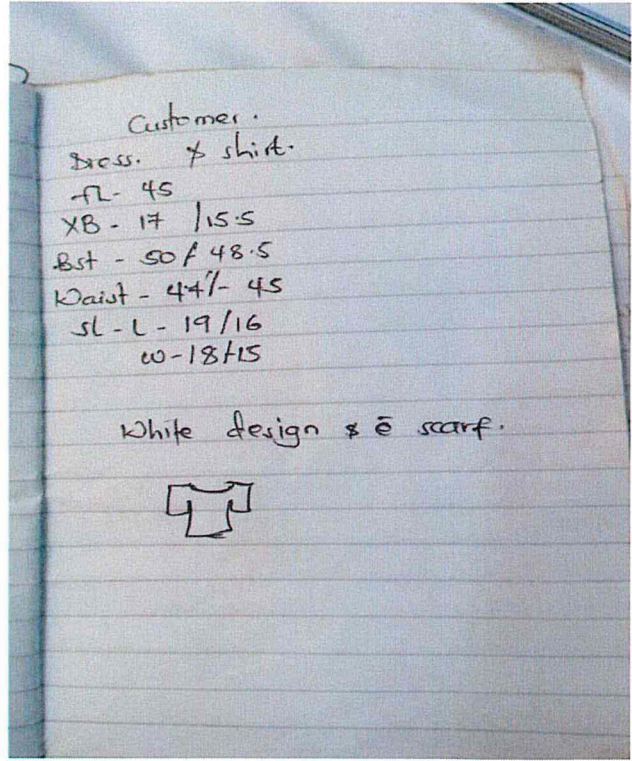 Customer.
Dress. & shirt.
fL - 45
XB - 17 /15.5
Bst - 50 / 48.5
Waist - 44 /- 45
sl - L - 19/16
w - 18/15
White design & ē scarf.